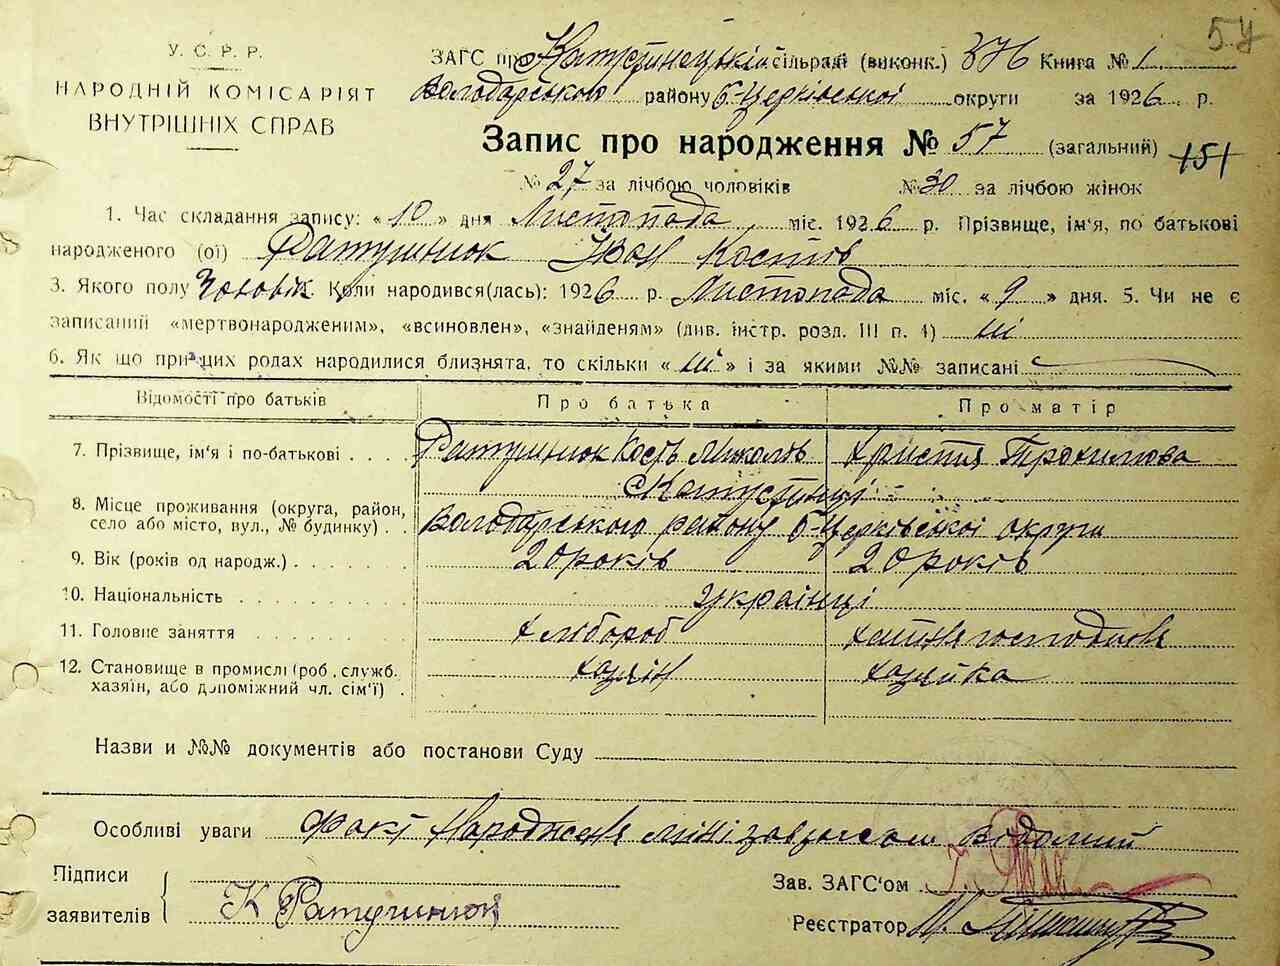 54
У. С. Р. Р.
НАРОДНІЙ КОМІСАРІЯТ
ВНУТРІШНІХ СПРАВ
ЗАГС при сільраді (виконк.) Книга № 1
Володарського району Б-Церківської округи за 1926 р.
Запис про народження № 57 (загальний) 151
№ 27 за лічбою чоловіків № 30 за лічбою жінок
1. Час складання запису: « 10 » дня Листопада міс. 1926 р. Прізвище, ім'я, по батькові
народженого (ої) Ратушнюк Іван Костів
3. Якого полу Чоловік. Коли народився(лась): 1926 р. Листопада міс. « 9 » дня. 5. Чи не є
записаний «мертвонародженим», «всиновлен», «знайденям» (див. інстр. розд. III п. 4) ні
6. Як що при цих родах народилися близнята, то скільки « ні » і за якими №№ записані
Відомості про батьків Про батька Про матір
7. Прізвище, ім'я і по-батькові . . . . Ратушнюк Кость Микол. Христия Трохимова
8. Місце проживання (округа, район, село або місто, вул., № будинку) .
Володарського району Б-Церківської округи
9. Вік (років од народж.) . . . . . . . 20 років 20 років
10. Національність . . . . . . . . . українці
11. Головне заняття . . . . . . . хлібороб хатнє господарст
12. Становище в промислі (роб., служб.
хазяїн, або допоміжний чл. сім'ї) . хазяїн хазяйка
Назви и №№ документів або постанови Суду
Особливі уваги Факт народження мені завзагсом відомий
Підписи
заявителів К Ратушнюк
Зав. ЗАГС'ом
Реєстратор